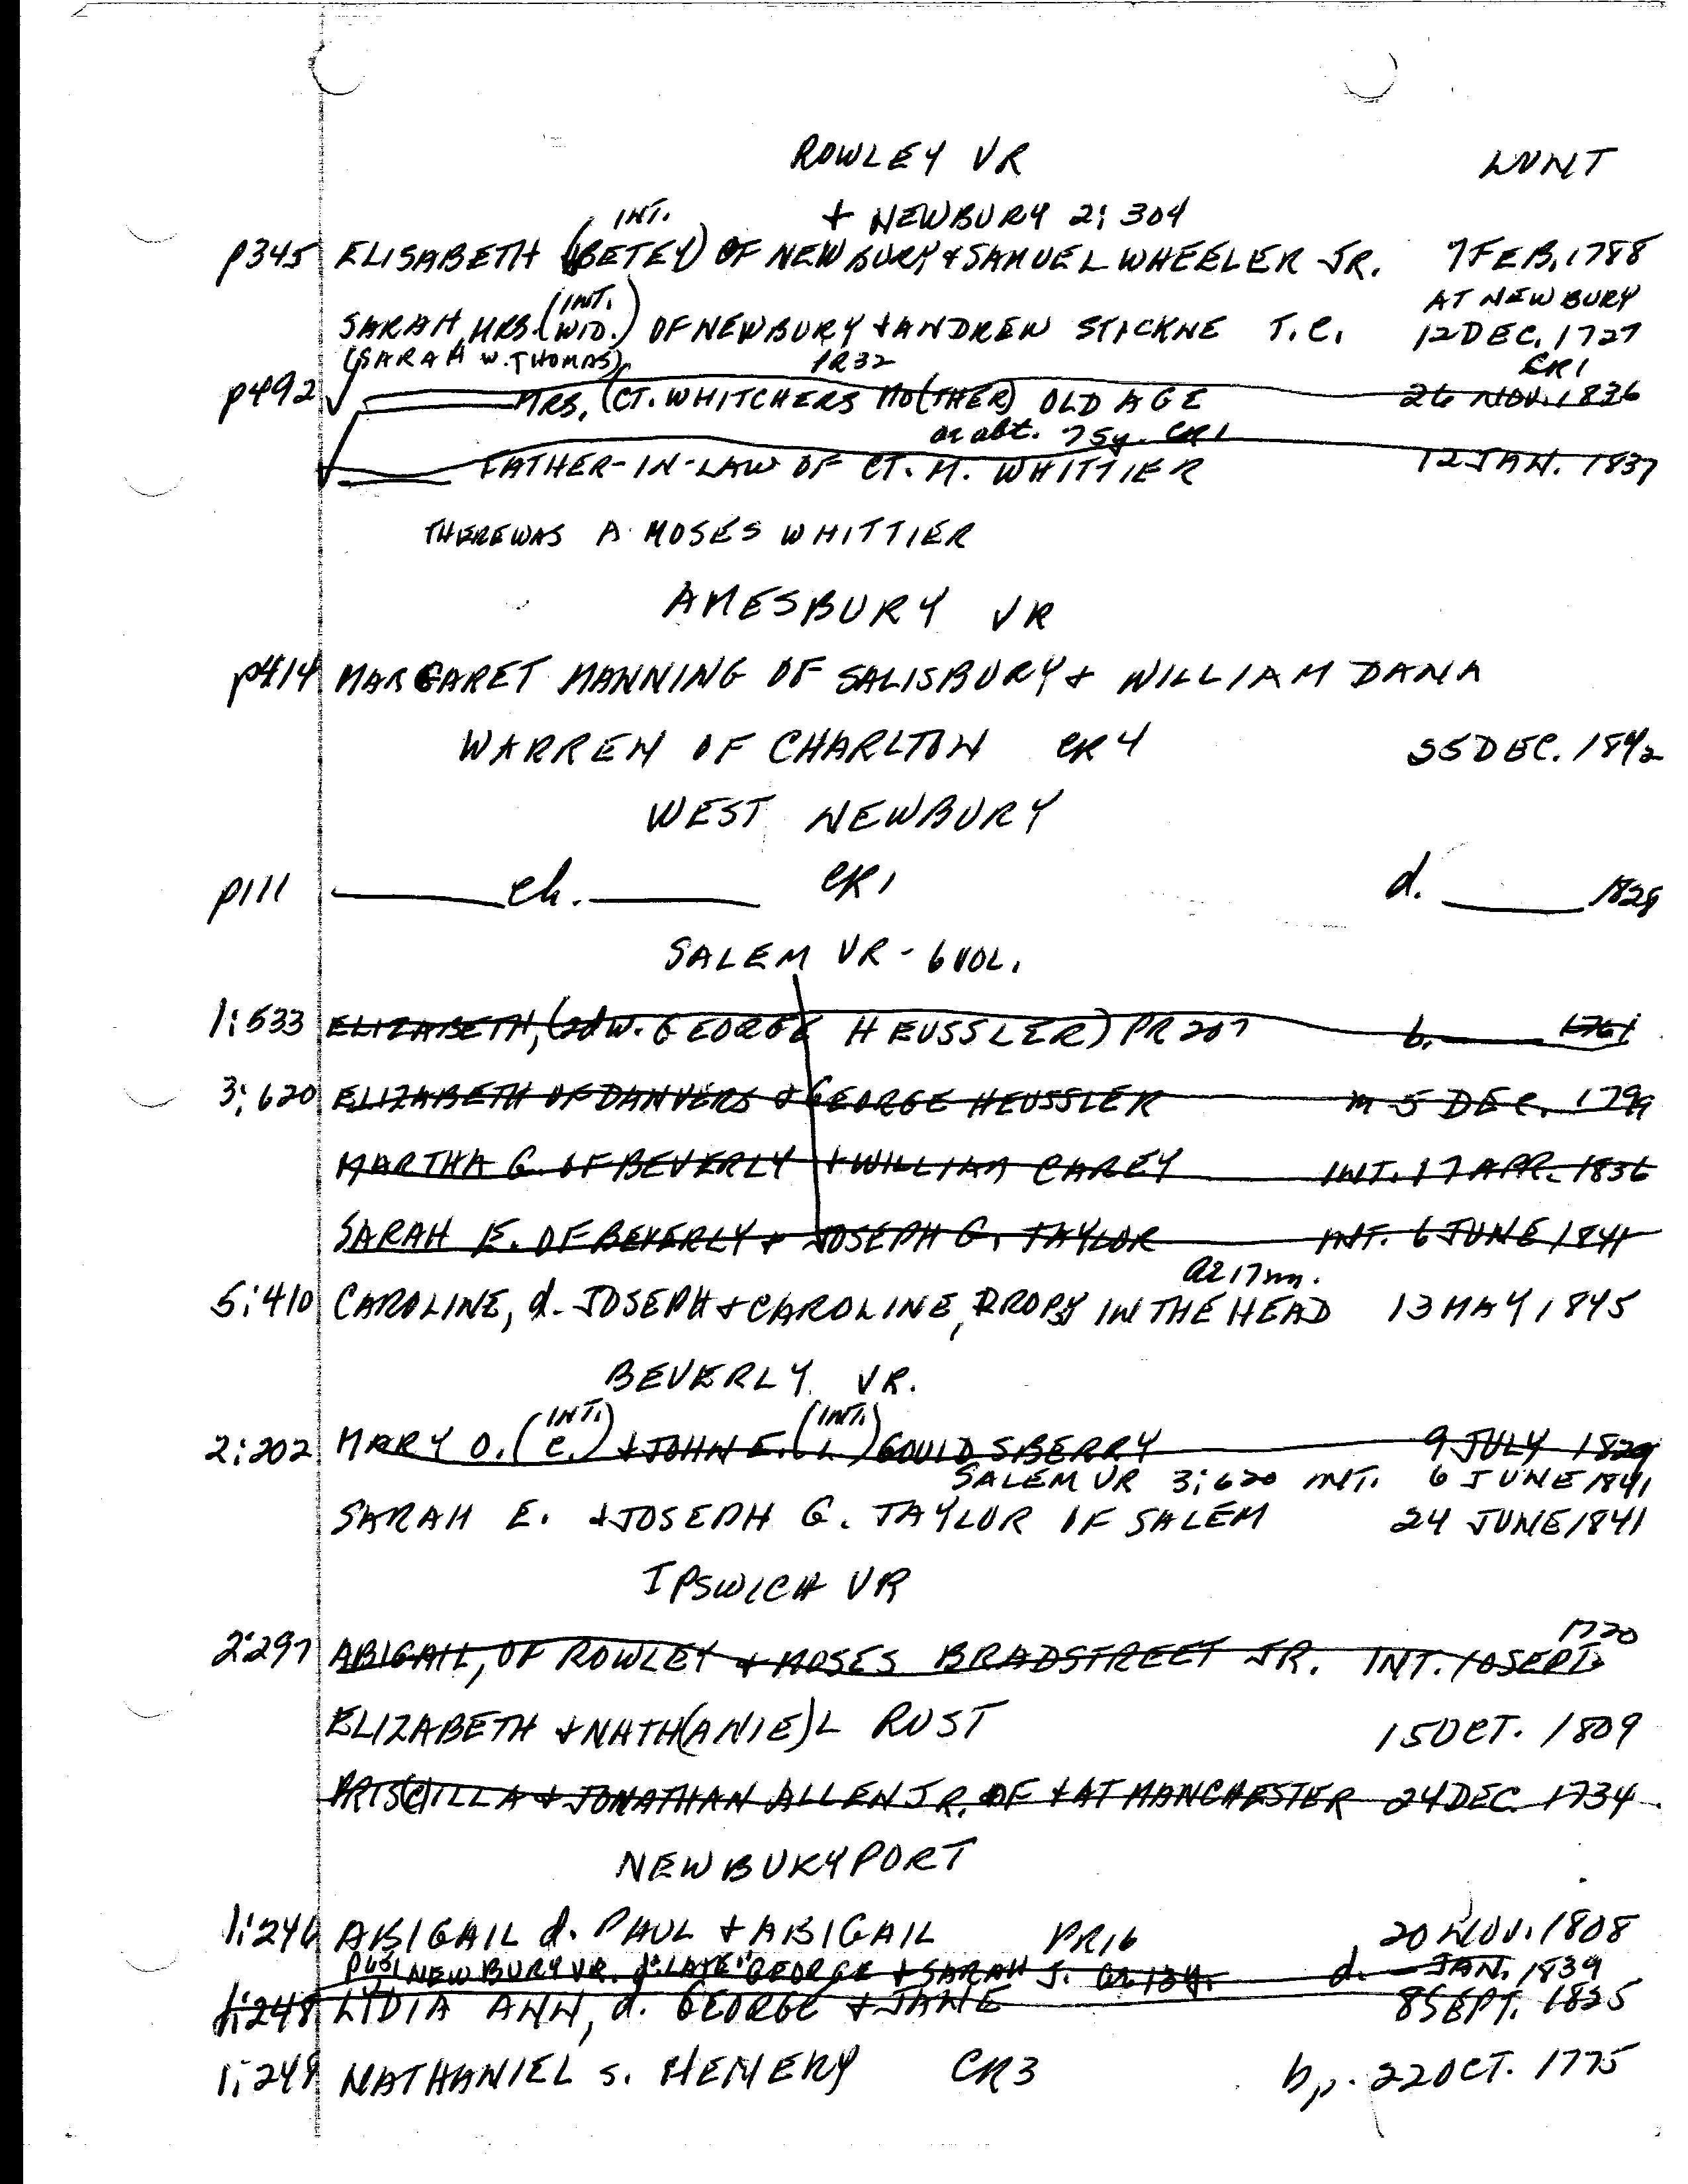 ROWLEY VR LUNT
INT. + NEWBURY 2:304
p345 ELISABETH (BETEY) OF NEWBURY + SAMUEL WHEELER JR. 7 FEB. 1788
(INT. AT NEWBURY
SARAH, MRS. (WID.) OF NEWBURY + ANDREW STICKNE T.C. 12 DEC. 1727
(SARAH W. THOMAS), PR32 CR1
p492 MRS. (CT. WHITCHERS MO(THER) OLD AGE 26 NOV. 1836
ae abt. 75y. CR1
FATHER-IN-LAW OF CT. M. WHITTIER 12 JAN. 1837
THERE WAS A MOSES WHITTIER
AMESBURY VR
p414 MARGARET MANNING OF SALISBURY + WILLIAM DANA
WARREN OF CHARLTON CR4 25 DEC. 1842
WEST NEWBURY
p111 ____ ch. ____ CR1 d. ____ 1828
SALEM VR - 6 VOL.
1:533 ELIZABETH, (2d W. GEORGE HEUSSLER) PR 207 b. ____ 1761
3:620 ELIZABETH OF DANVERS + GEORGE HEUSSLER m 5 DEC. 1799
MARTHA G. OF BEVERLY + WILLIAM CAREY INT. 17 APR. 1836
SARAH E. OF BEVERLY + JOSEPH G. TAYLOR INT. 6 JUNE 1841
ae 17m.
5:410 CAROLINE, d. JOSEPH + CAROLINE, DROPSY IN THE HEAD 13 MAY 1845
BEVERLY VR.
(INT.) (INT.)
2:202 MARY O. (C.) + JOHN E. (L.) GOULDSBERRY 9 JULY 1829
SALEM VR 3:620 INT. 6 JUNE 1841
SARAH E. + JOSEPH G. TAYLOR OF SALEM 24 JUNE 1841
IPSWICH VR
1720
2:297 ABIGAIL, OF ROWLEY + MOSES BRADSTREET JR. INT. 10 SEPT.
ELIZABETH + NATH(ANIE)L RUST 15 OCT. 1809
PRIS(C)ILLA + JONATHAN ALLEN JR. OF + AT MANCHESTER 24 DEC. 1734
NEWBURYPORT
1:246 ABIGAIL d. PAUL + ABIGAIL PR16 20 NOV. 1808
NEWBURY VR. d. "LATE" GEORGE + SARAH J. ae 13y. d. – JAN. 1839
1:248 LYDIA ANN, d. GEORGE + JANE 8 SEPT. 1825
1:249 NATHANIEL S. HENERY CR3 bp. 22 OCT. 1775